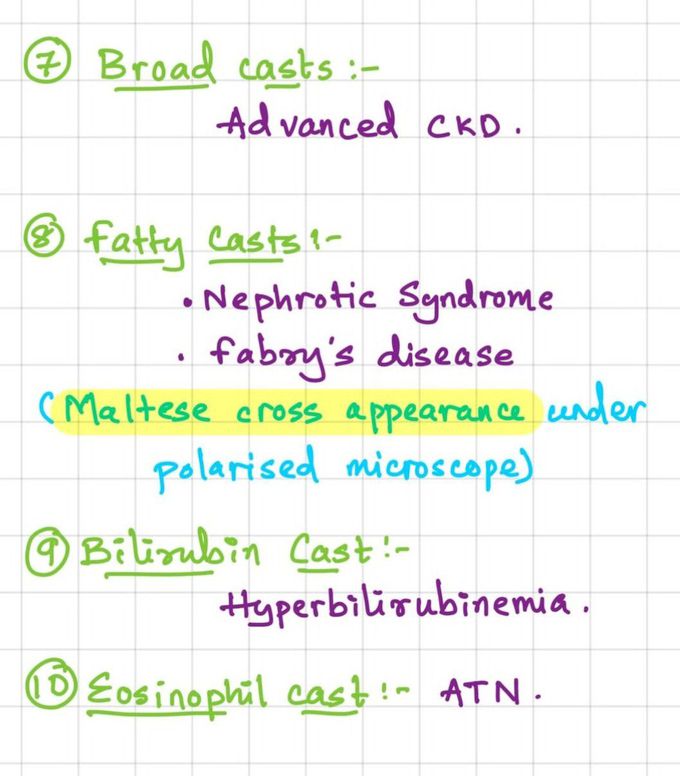 ⑦ Broad casts :-
Advanced CKD.
⑧ Fatty Casts :-
• Nephrotic Syndrome
• Fabry's disease
(Maltese cross appearance under
polarised microscope)
⑨ Bilirubin Cast :-
Hyperbilirubinemia.
⑩ Eosinophil cast :- ATN.